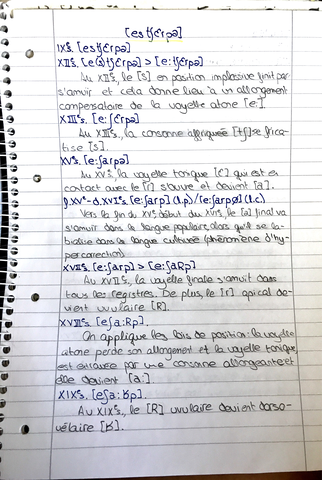 [estʃɛ́rpə]
IXᵉs. [estʃɛ́rpə]
XIIᵉs. [e(s)tʃɛ́rpə] > [e:tʃɛ́rpə]
Au XIIᵉs, le [s] en position implosive finit par
s'amuïr et cela donne lieu à un allongement
compensatoire de la voyelle atone [e:].
XIIIᵉs. [e:ʃɛ́rpə]
Au XIIIᵉs, la consonne affriquée [tʃ] se frica-
tise [ʃ].
XVᵉs. [e:ʃarpə]
Au XVᵉs, la voyelle tonique [ɛ́] qui est en
contact avec le [r] s'ouvre et devient [a].
f.XVᵉ-d.XVIᵉs [e:ʃarp] (l.p)/[e:ʃarpø] (l.c)
Vers la fin du XVᵉ début du XVIᵉs, le [ə] final va
s'amuïr dans la langue populaire, alors qu'il se la-
bialise dans la langue cultivée (phénomène d'hy-
percorrection).
XVIIᵉs. [e:ʃarp] > [e:ʃaRp]
Au XVIIᵉs, la voyelle finale s'amuït dans
tous les registres. De plus, le [r] apical de-
vient uvulaire [R].
XVIIIᵉs. [eʃa:Rp].
On applique les lois de position: la voyelle
atone perd son allongement et la voyelle tonique,
est entravée par une consonne allongeante et
elle devient [a:].
XIXᵉs. [eʃa:ʁp].
Au XIXᵉs, le [R] uvulaire devient dorso-
vélaire [ʁ].